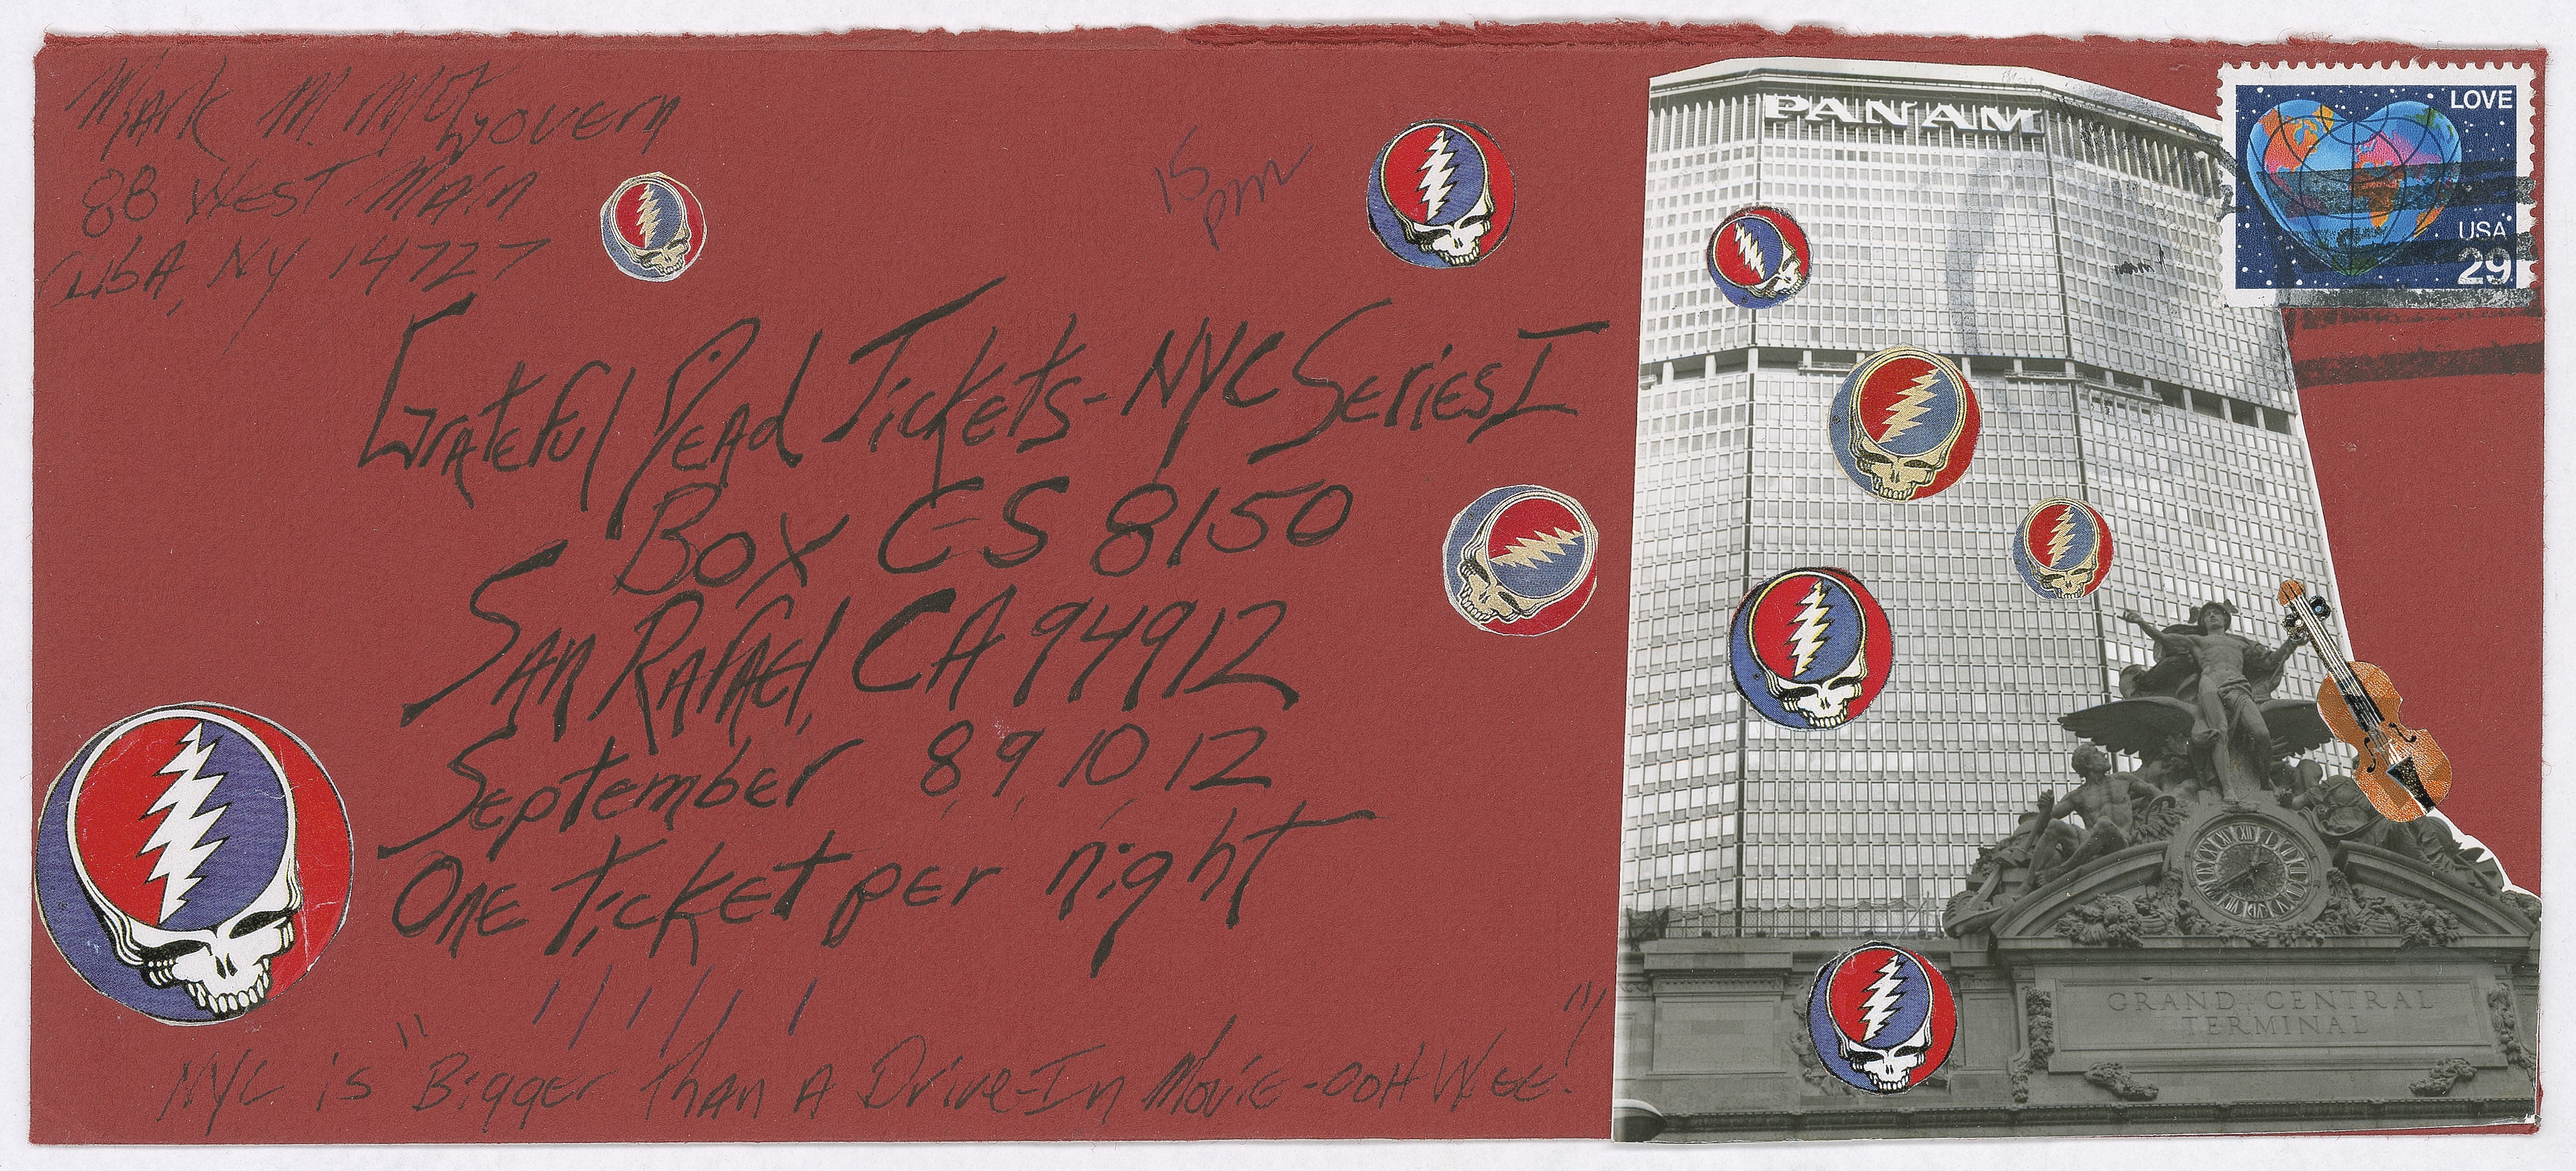 Mark M. McGovern
88 West Main
Cuba, NY 14727
15
pm
Grateful Dead Tickets-NYC Series I
Box C-S 8150
San Rafael, CA 94912
September 8, 9, 10, 12
One ticket per night
NYC is "Bigger Than A Drive-In Movie-OOH WEE!"
PAN AM
LOVE
USA
29
GRAND CENTRAL
TERMINAL